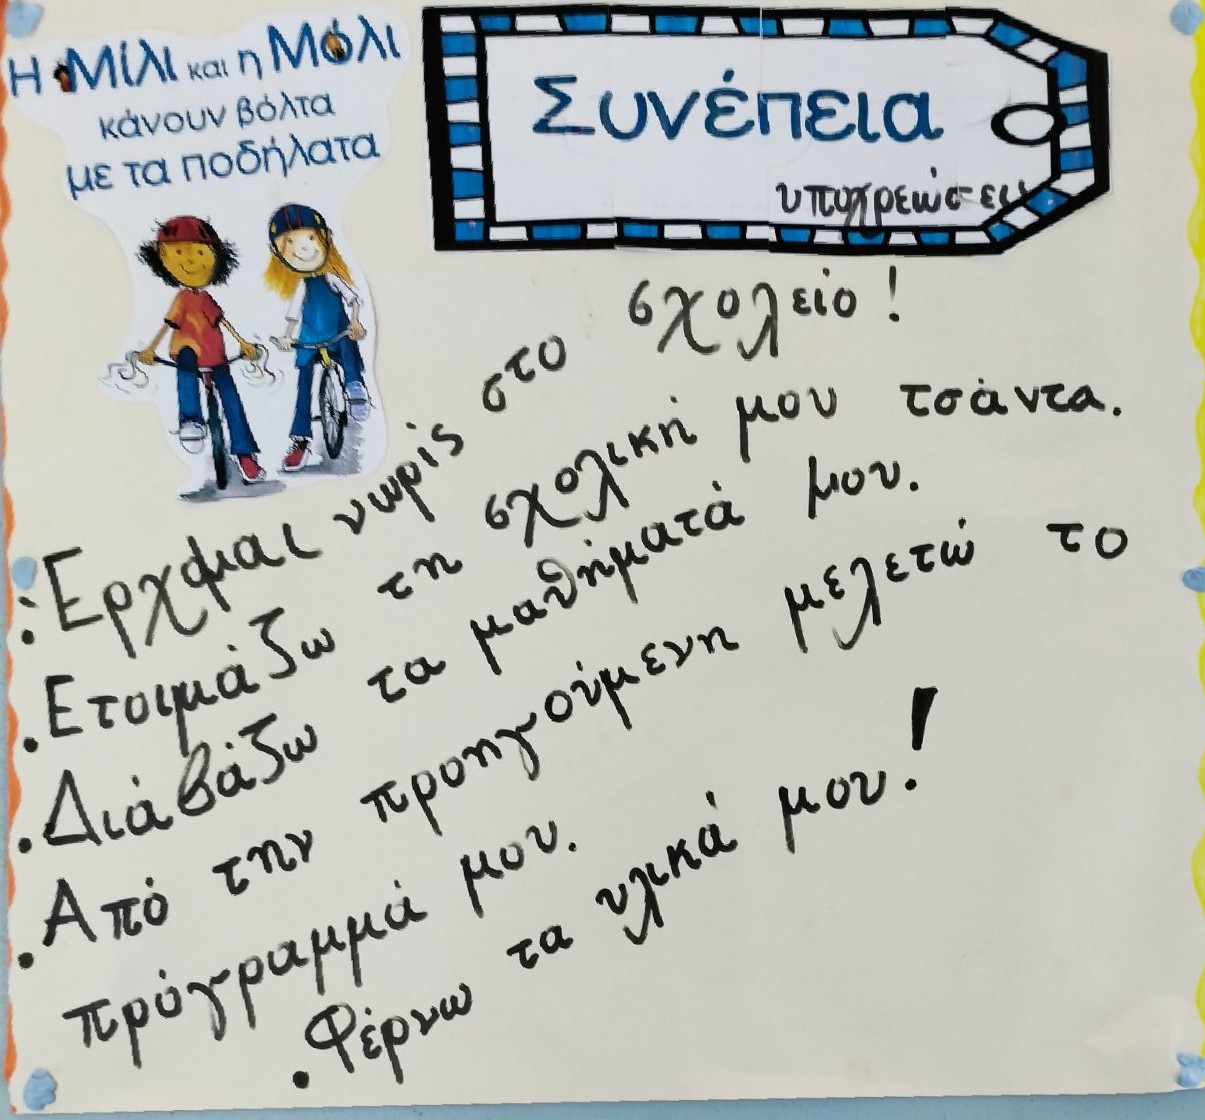 Η Μίλι και η Μόλι
κάνουν βόλτα
με τα ποδήλατα
Συνέπεια
υποχρεώσεις
:Ερχομαι νωρίς στο σχολείο!
. Ετοιμάζω τη σχολική μου τσάντα.
. Διάβάζω τα μαθήματά μου.
. Από την προηγούμενη μελετώ το
πρόγραμμά μου.
. Φέρνω τα υλικά μου!